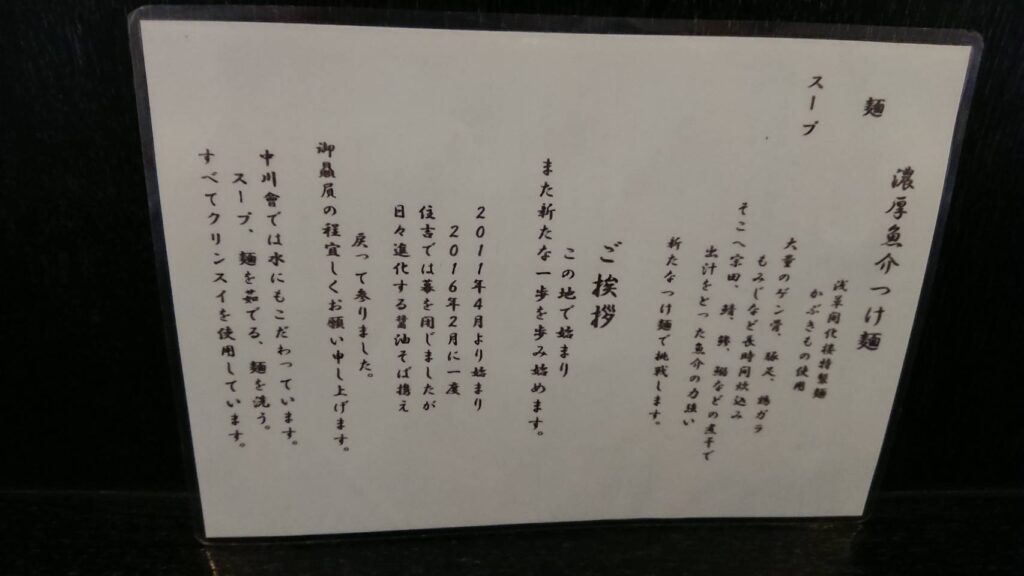 濃厚魚介つけ麺
麺
浅草開化楼特製麺
かぶきもの使用
スープ
大量のゲン骨、豚足、鶏ガラ
もみじなど長時間炊込み
そこへ宗田、鯖、鯵、鰯などの煮干で
出汁をとった魚介の力強い
新たなつけ麺で挑戦します。
ご挨拶
この地で始まり
また新たな一歩を歩み始めます。
2011年4月より始まり
2016年2月に一度
住吉では幕を閉じましたが
日々進化する醤油そば携え
戻って参りました。
御贔屓の程宜しくお願い申し上げます。
中川會では水にもこだわっています。
スープ、麺を茹でる、麺を洗う。
すべてクリンスイを使用しています。